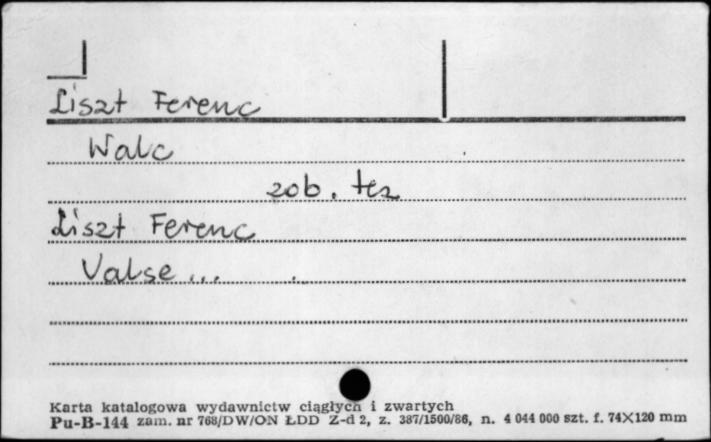 Liszt Ferenc
Walc
zob. też
Liszt Ferenc
Valse ...
Karta katalogowa wydawnictw ciągłych i zwartych
Pu-B-144 zam. nr 768/DW/ON ŁDD Z-d 2, z. 387/1500/86, n. 4 044 000 szt. f. 74X120 mm